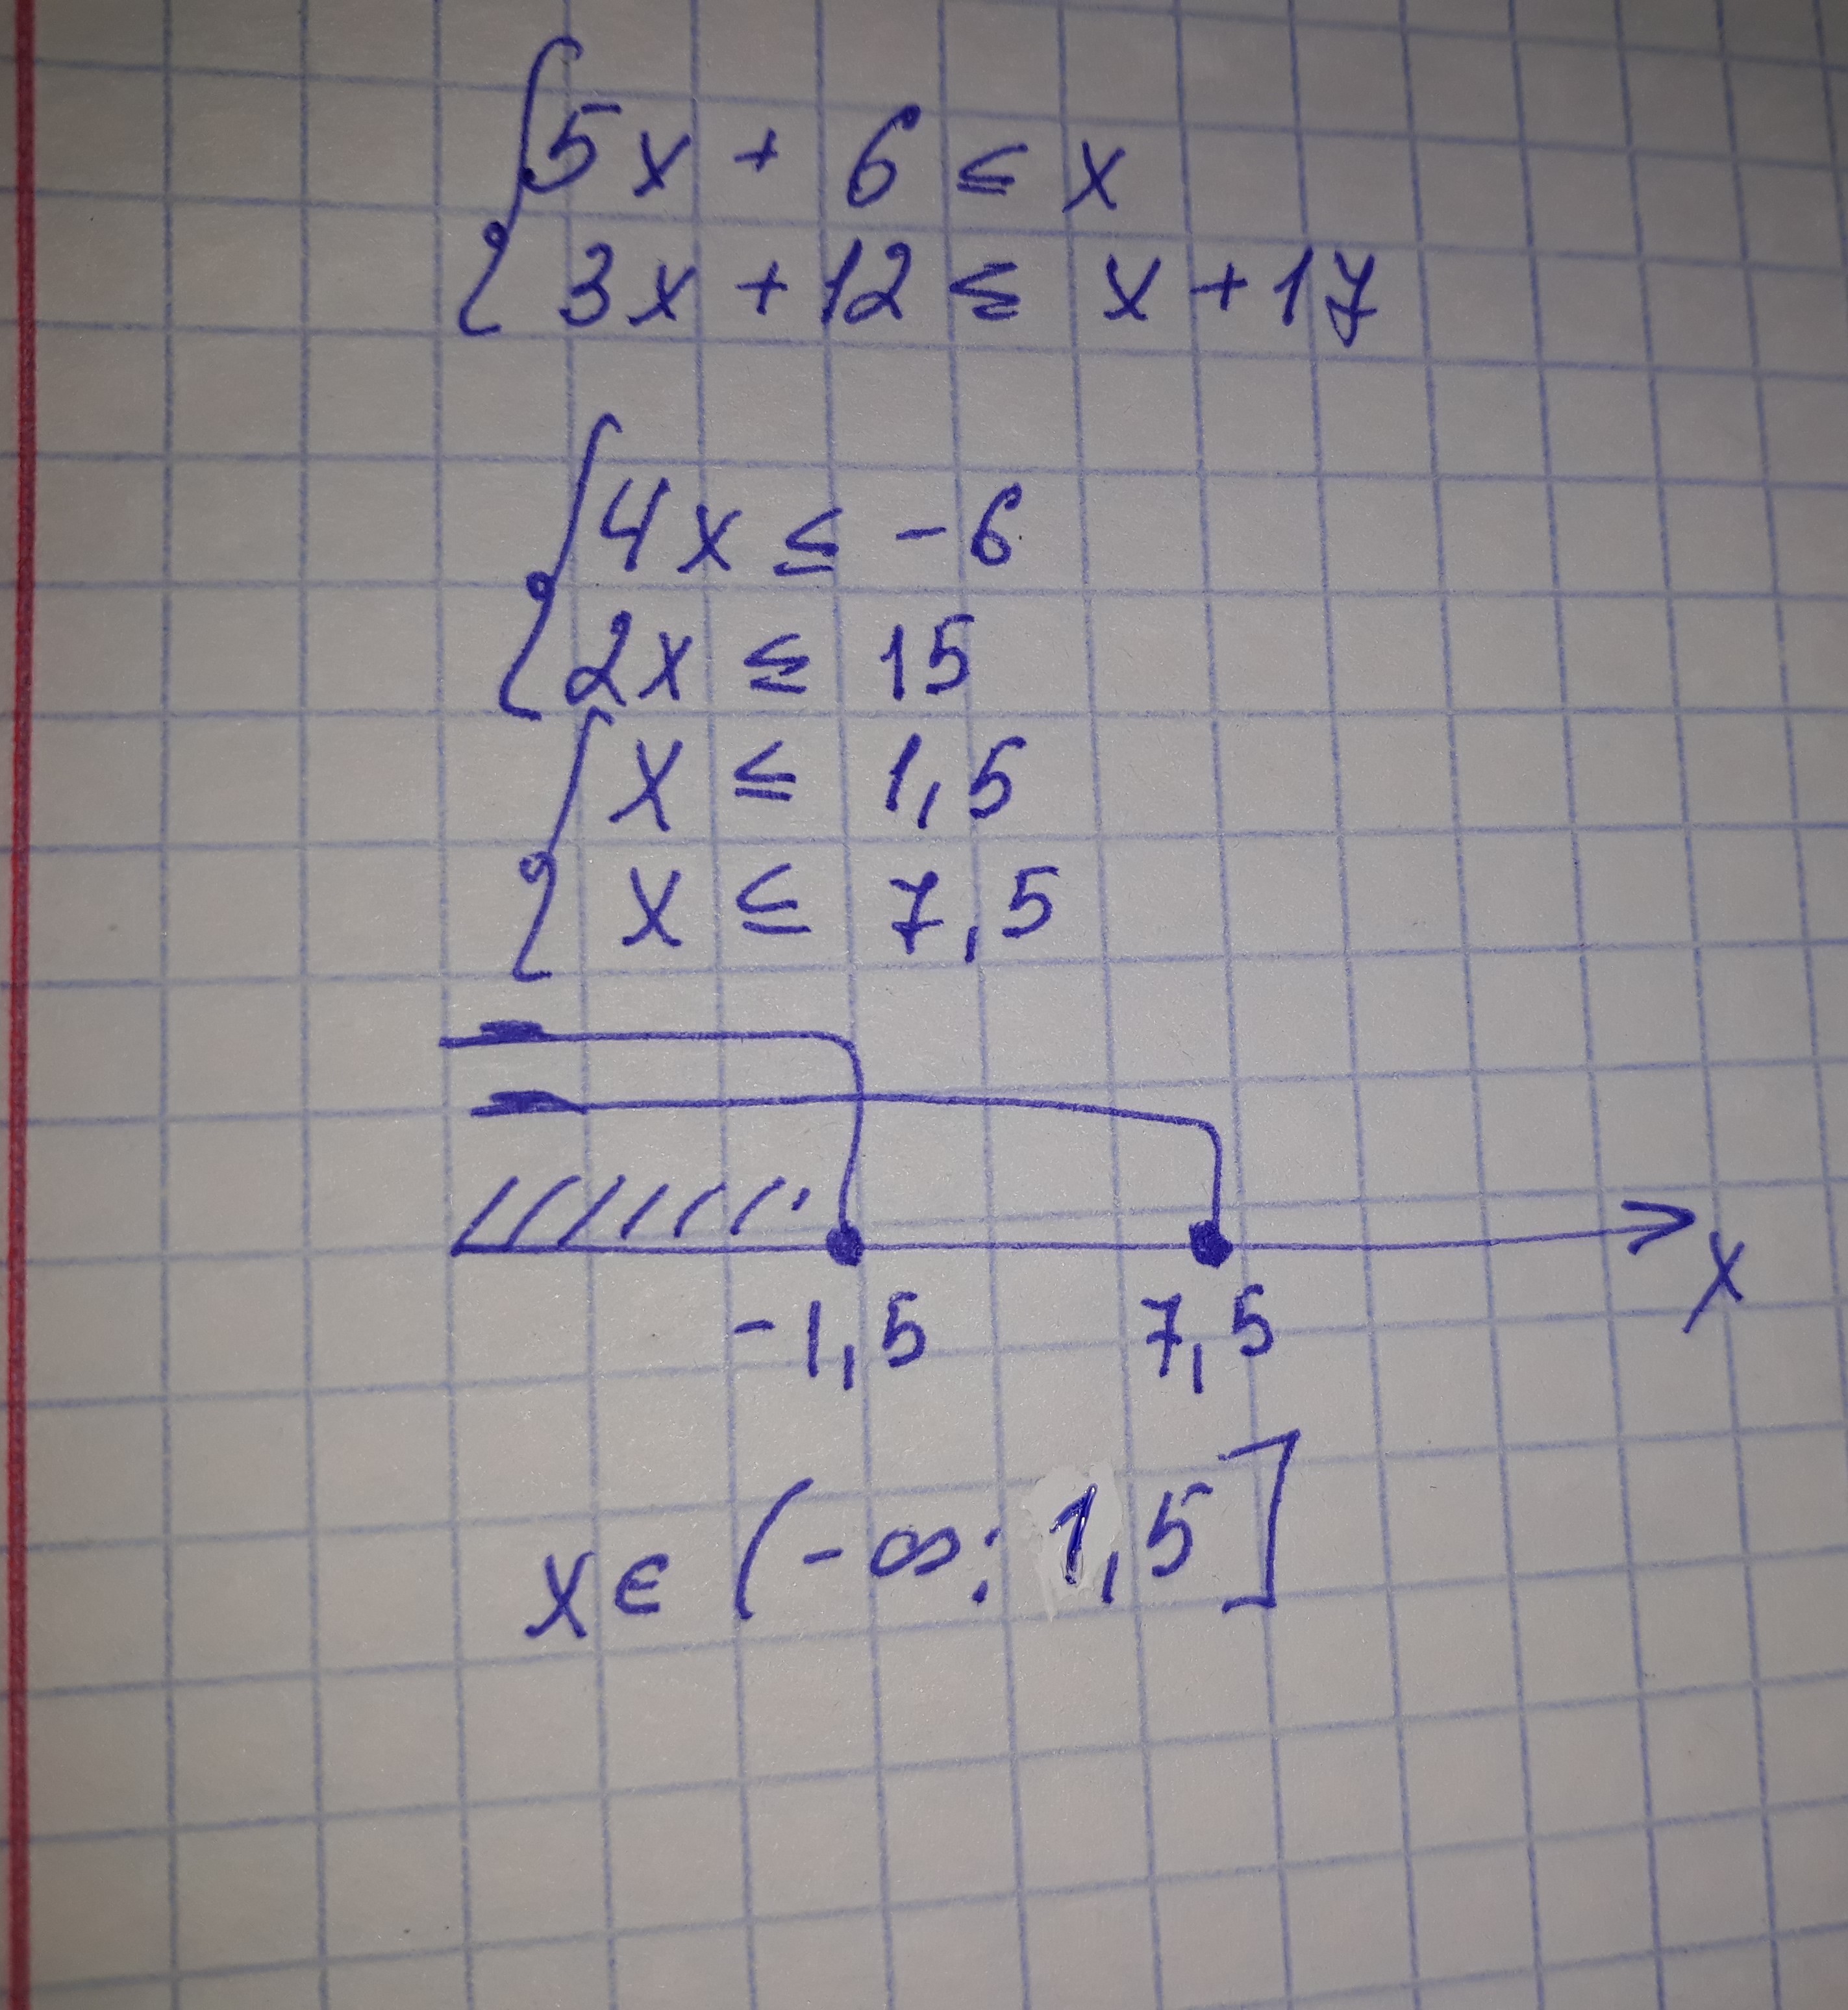 5x + 6 ≤ x
3x + 12 ≤ x + 17
4x ≤ -6
2x ≤ 15
x ≤ 1,5
x ≤ 7,5
-1,5 7,5 x
x ∈ (-∞; 1,5]